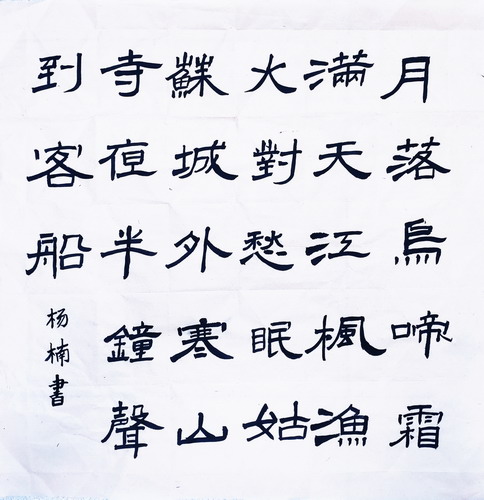 月落烏啼霜
滿天江楓漁
火對愁眠姑
蘇城外寒山
寺夜半鐘聲
到客船
杨楠書